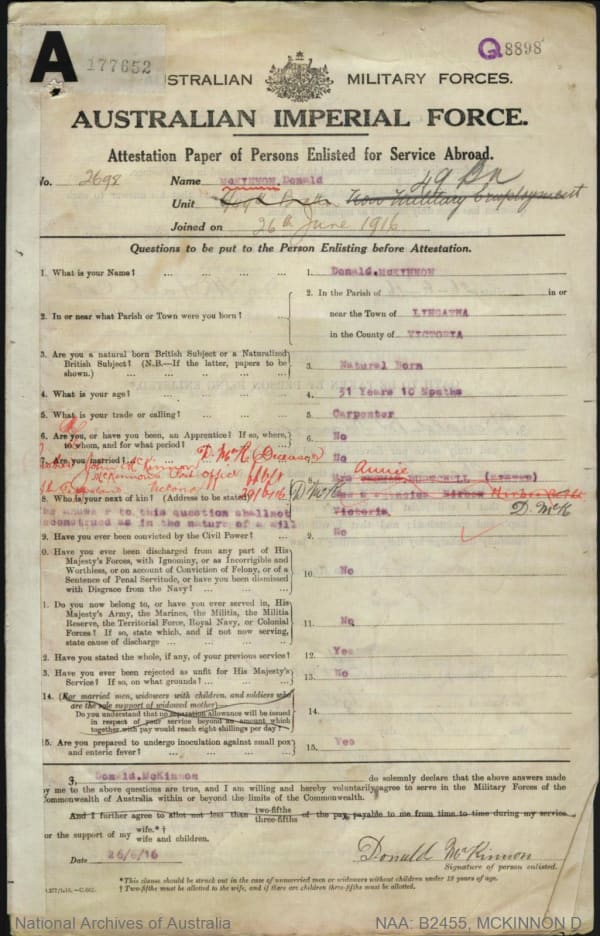 A 177652
Q 8898
AUSTRALIAN MILITARY FORCES.
AUSTRALIAN IMPERIAL FORCE.
Attestation Paper of Persons Enlisted for Service Abroad.
No. 2698 Name McKINNON.Donald
Unit Non Military Employment 49 Bn
Joined on 26th June 1916
Questions to be put to the Person Enlisting before Attestation.
1. What is your Name? ... ... ... ... 1. Donald.McKINNON
2. In or near what Parish or Town were you born? ... 2. In the Parish of in or
near the Town of
in the County of VICTORIA
3. Are you a natural born British Subject or a Naturalized British Subject? (N.B.—If the latter, papers to be shown.) ... ... 3. Natural Born
4. What is your age? ... ... ... ... 4. 31 Years 10 Months
5. What is your trade or calling? ... ... ... 5. Carpenter
6. Are you, or have you been, an Apprentice? If so, where, to whom, and for what period? ... ... 6. No
7. Are you married? No
John McKinnon D. McK (Deceased)
McKinnons Post Office
Gippsland Victoria
8. Who is your next of kin? (Address to be stated) D McK 8. Mrs Annie
Victoria D. McK
answer to this question shall not
be construed as in the nature of a will
9. Have you ever been convicted by the Civil Power? ... 9. No
0. Have you ever been discharged from any part of His
Majesty's Forces, with Ignominy, or as Incorrigible and
Worthless, or on account of Conviction of Felony, or of a
Sentence of Penal Servitude, or have you been dismissed
with Disgrace from the Navy? ... ... ... 10. No
1. Do you now belong to, or have you ever served in, His
Majesty's Army, the Marines, the Militia, the Militia
Reserve, the Territorial Force, Royal Navy, or Colonial
Forces? If so, state which, and if not now serving,
state cause of discharge ... ... ... 11. No
2. Have you stated the whole, if any, of your previous service? 12. Yes
3. Have you ever been rejected as unfit for His Majesty's
Service? If so, on what grounds? ... ... 13. No
14. (For married men, widowers with children, and soldiers who
are the sole support of widowed mother)
Do you understand that no separation allowance will be issued
in respect of your service beyond an amount which
together with pay would reach eight shillings per day? 14.
15. Are you prepared to undergo inoculation against small pox
and enteric fever? ... ... ... ... 15. Yes
I, Donald.McKinnon do solemnly declare that the above answers made
by me to the above questions are true, and I am willing and hereby voluntarily agree to serve in the Military Forces of the
Commonwealth of Australia within or beyond the limits of the Commonwealth.
And I further agree to allot not less than two-fifths three-fifths of the pay payable to me from time to time during my service
for the support of my wife.*† wife and children.
Date 26/6/16 Donald McKinnon
Signature of person enlisted.
*This clause should be struck out in the case of unmarried men or widowers without children under 18 years of age.
† Two-fifths must be allotted to the wife, and if there are children three-fifths must be allotted.
National Archives of Australia NAA: B2455, MCKINNON D